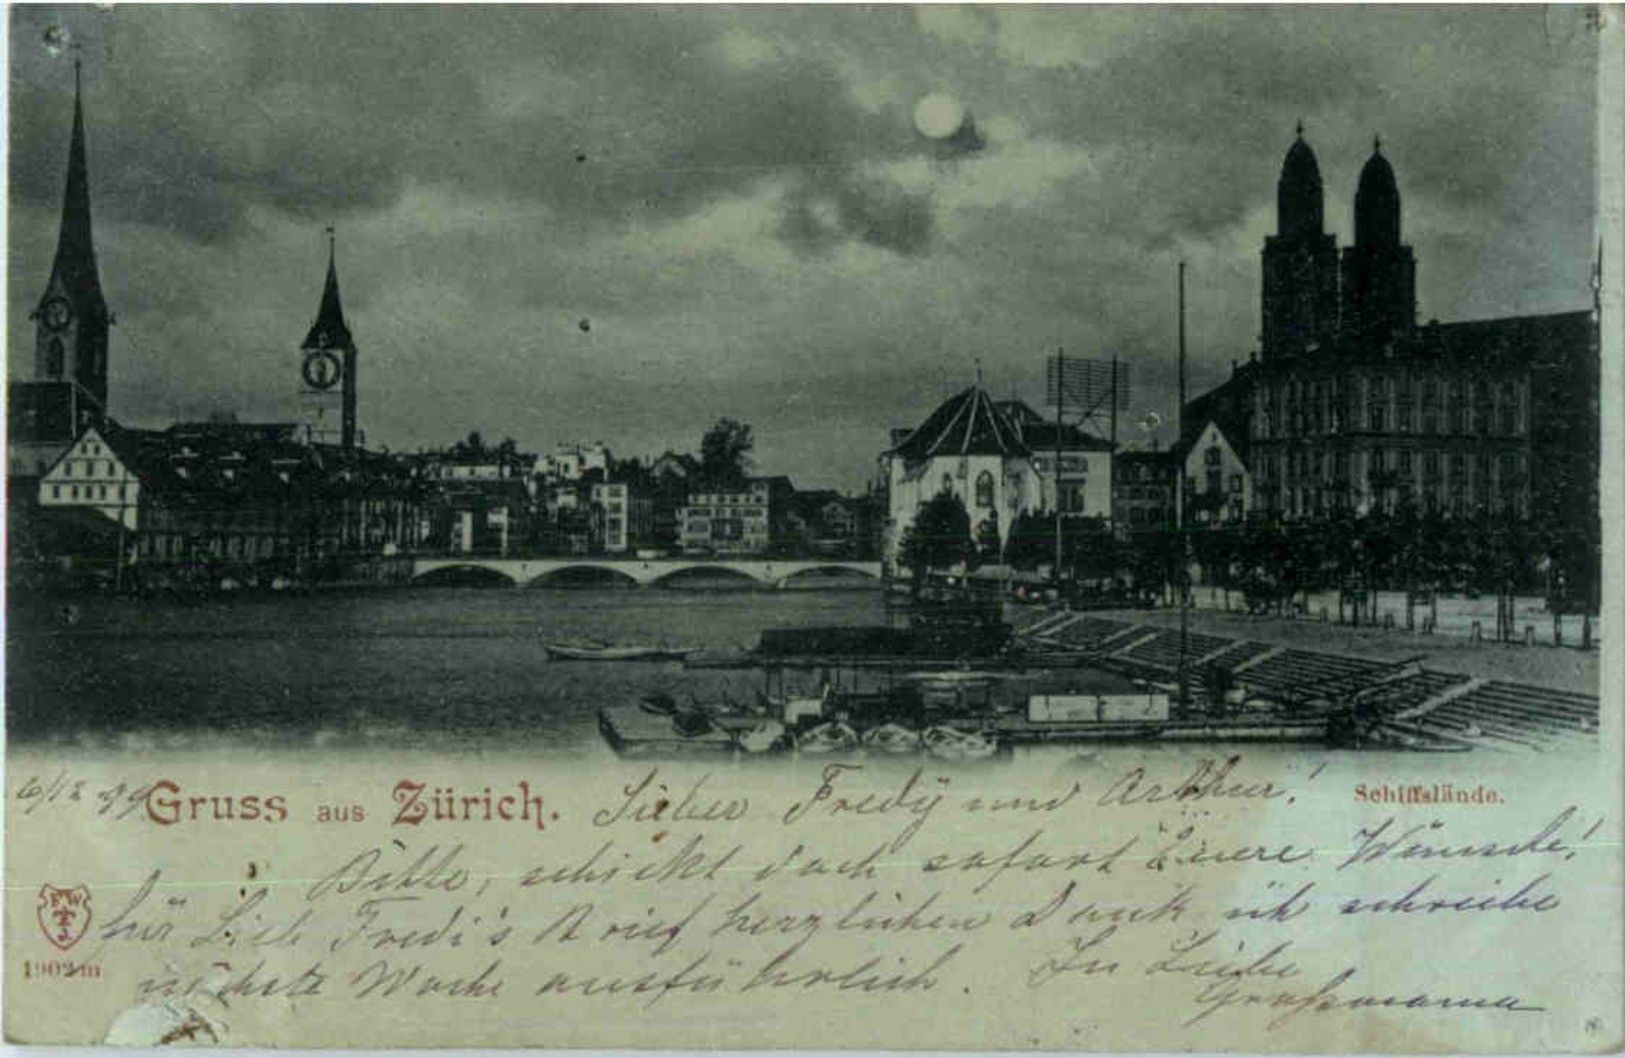 6/12 99 Gruss aus Zürich. Lieber Fredy und Arthur! Schifflände.
Bitte, schickt doch sofort Euere Wünsche!
für Lieb Fredi's Brief herzlichen Dank ich schreibe
nächste Woche ausführlich. In Liebe
Grossmama
F W
1902 m